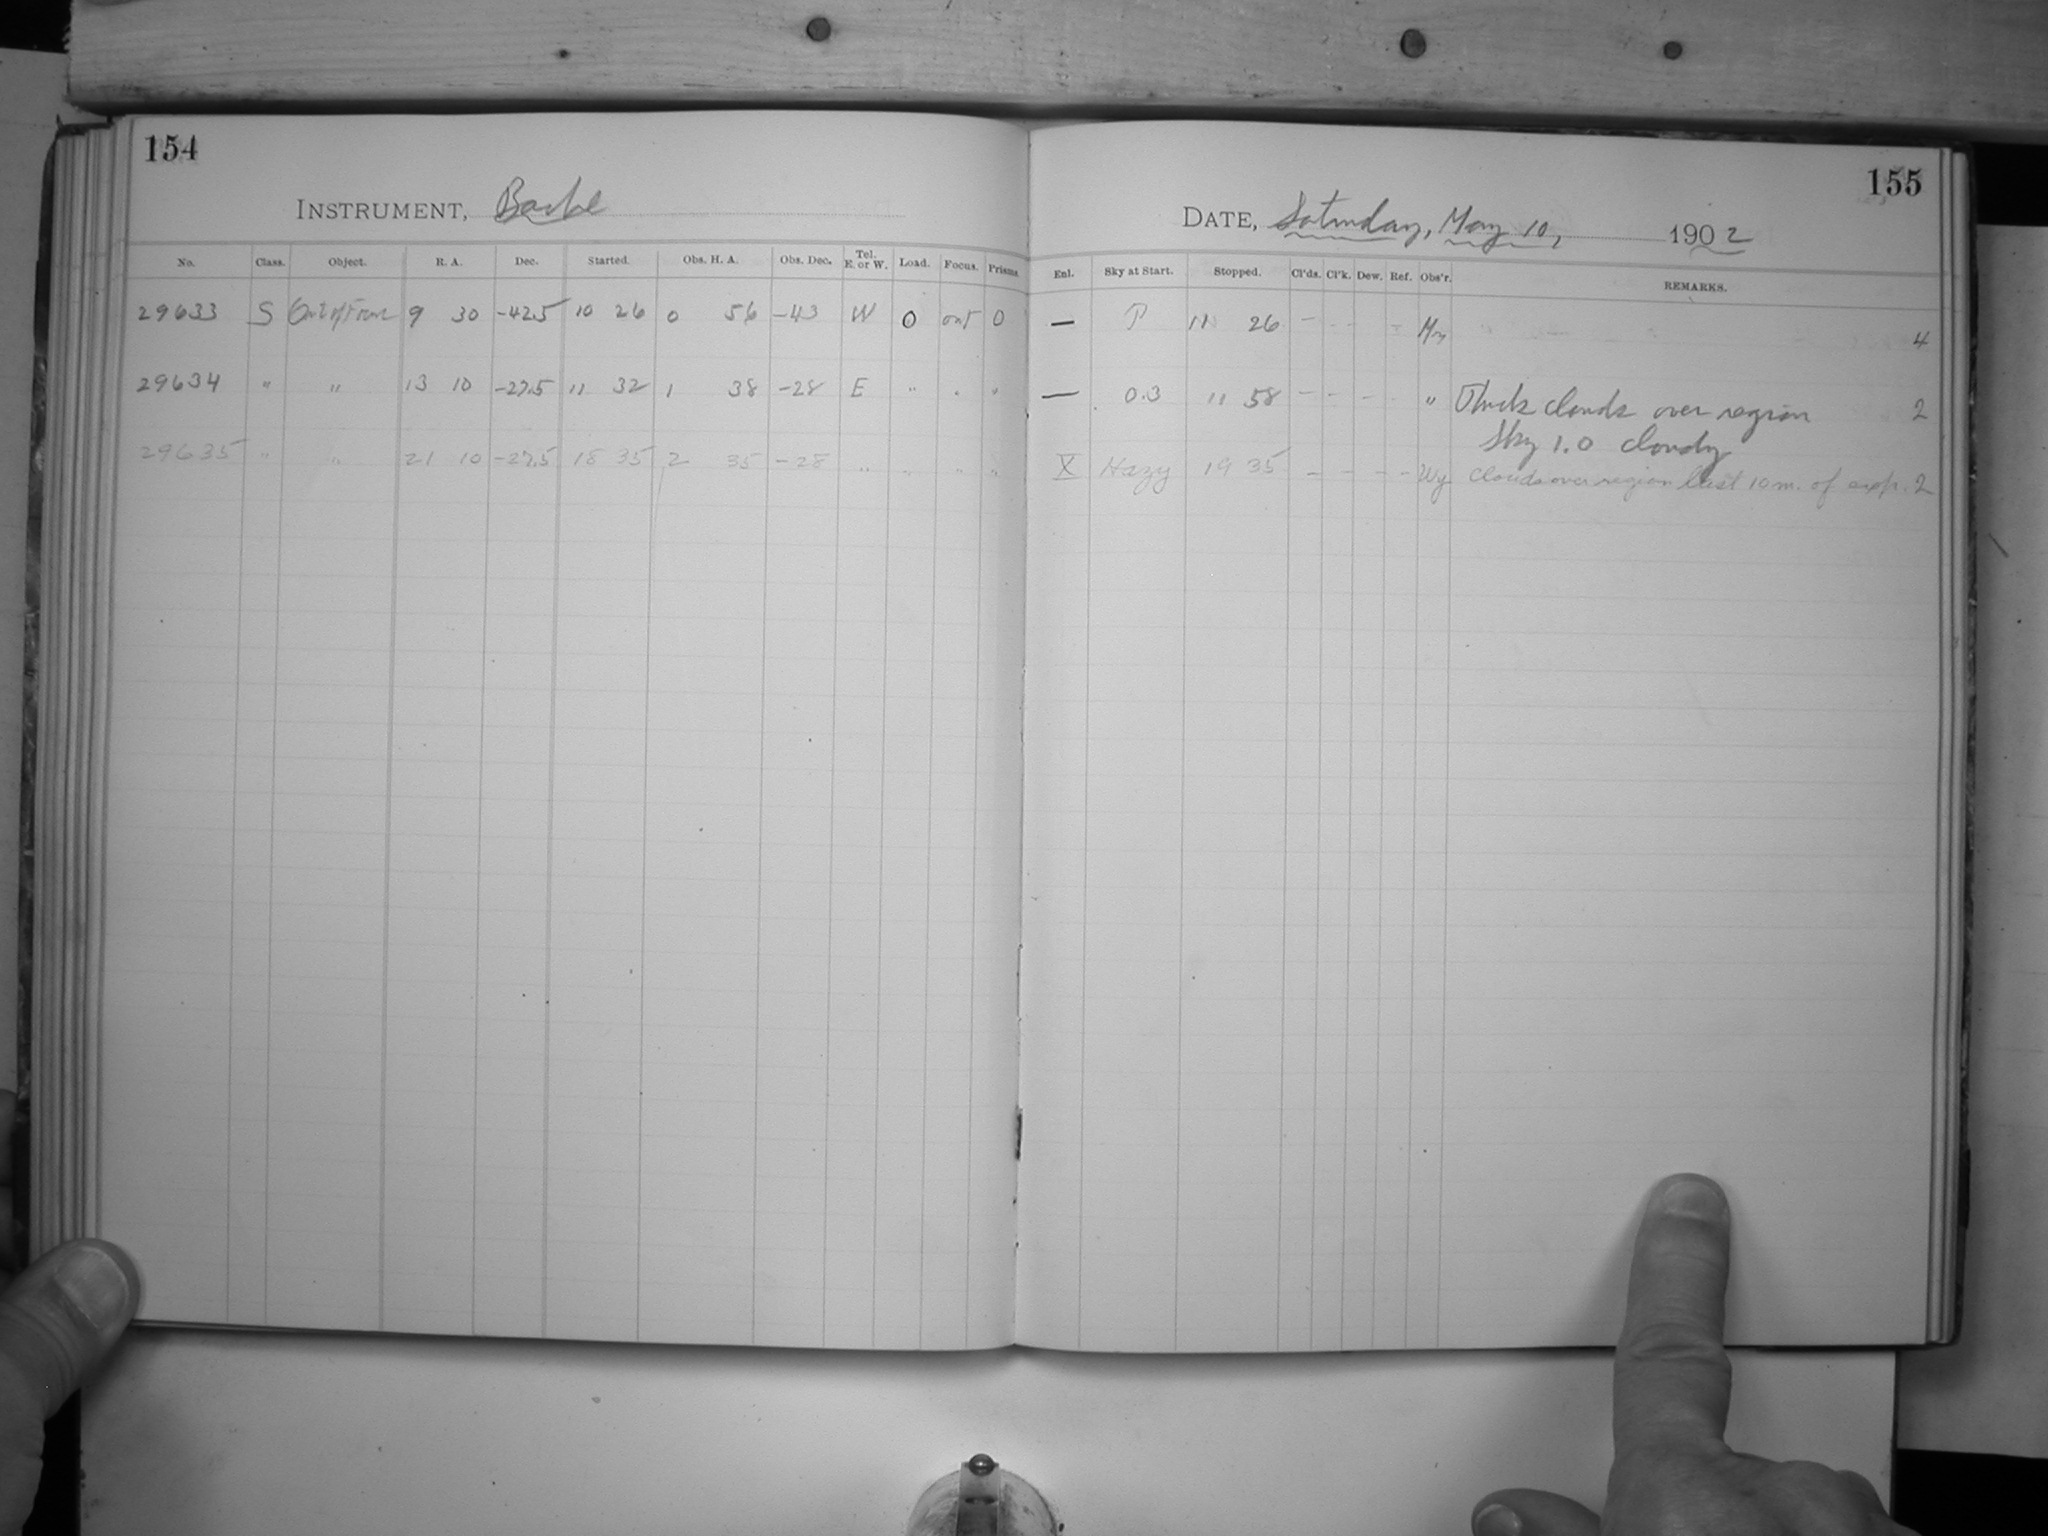 154
INSTRUMENT, Bache
No. Class. Object. R. A. Dec. Started. Obs. H. A. Obs. Dec. Tel. E. or W. Load. Focus. Prisms
29633 S Out of Focus 9 30 -42.5 10 26 0 56 -43 W 0 out 0
29634 " " 13 10 -27.5 11 32 1 38 -28 E " " "
29635 " " 21 10 -27.5 18 35 2 35 -28 " " " "
155
DATE, Saturday, May 10, 1902
Enl. Sky at Start. Stopped. Cl'ds. Cl'k. Dew. Ref. Obs'r. REMARKS.
— P 11 26 - - - 4
— 0.3 11 58 - - - " Thick clouds over region 2
Sky 1.0 cloudy
X Hazy 19 35 - - - - Wy Clouds over region last 10 m. of exp. 2